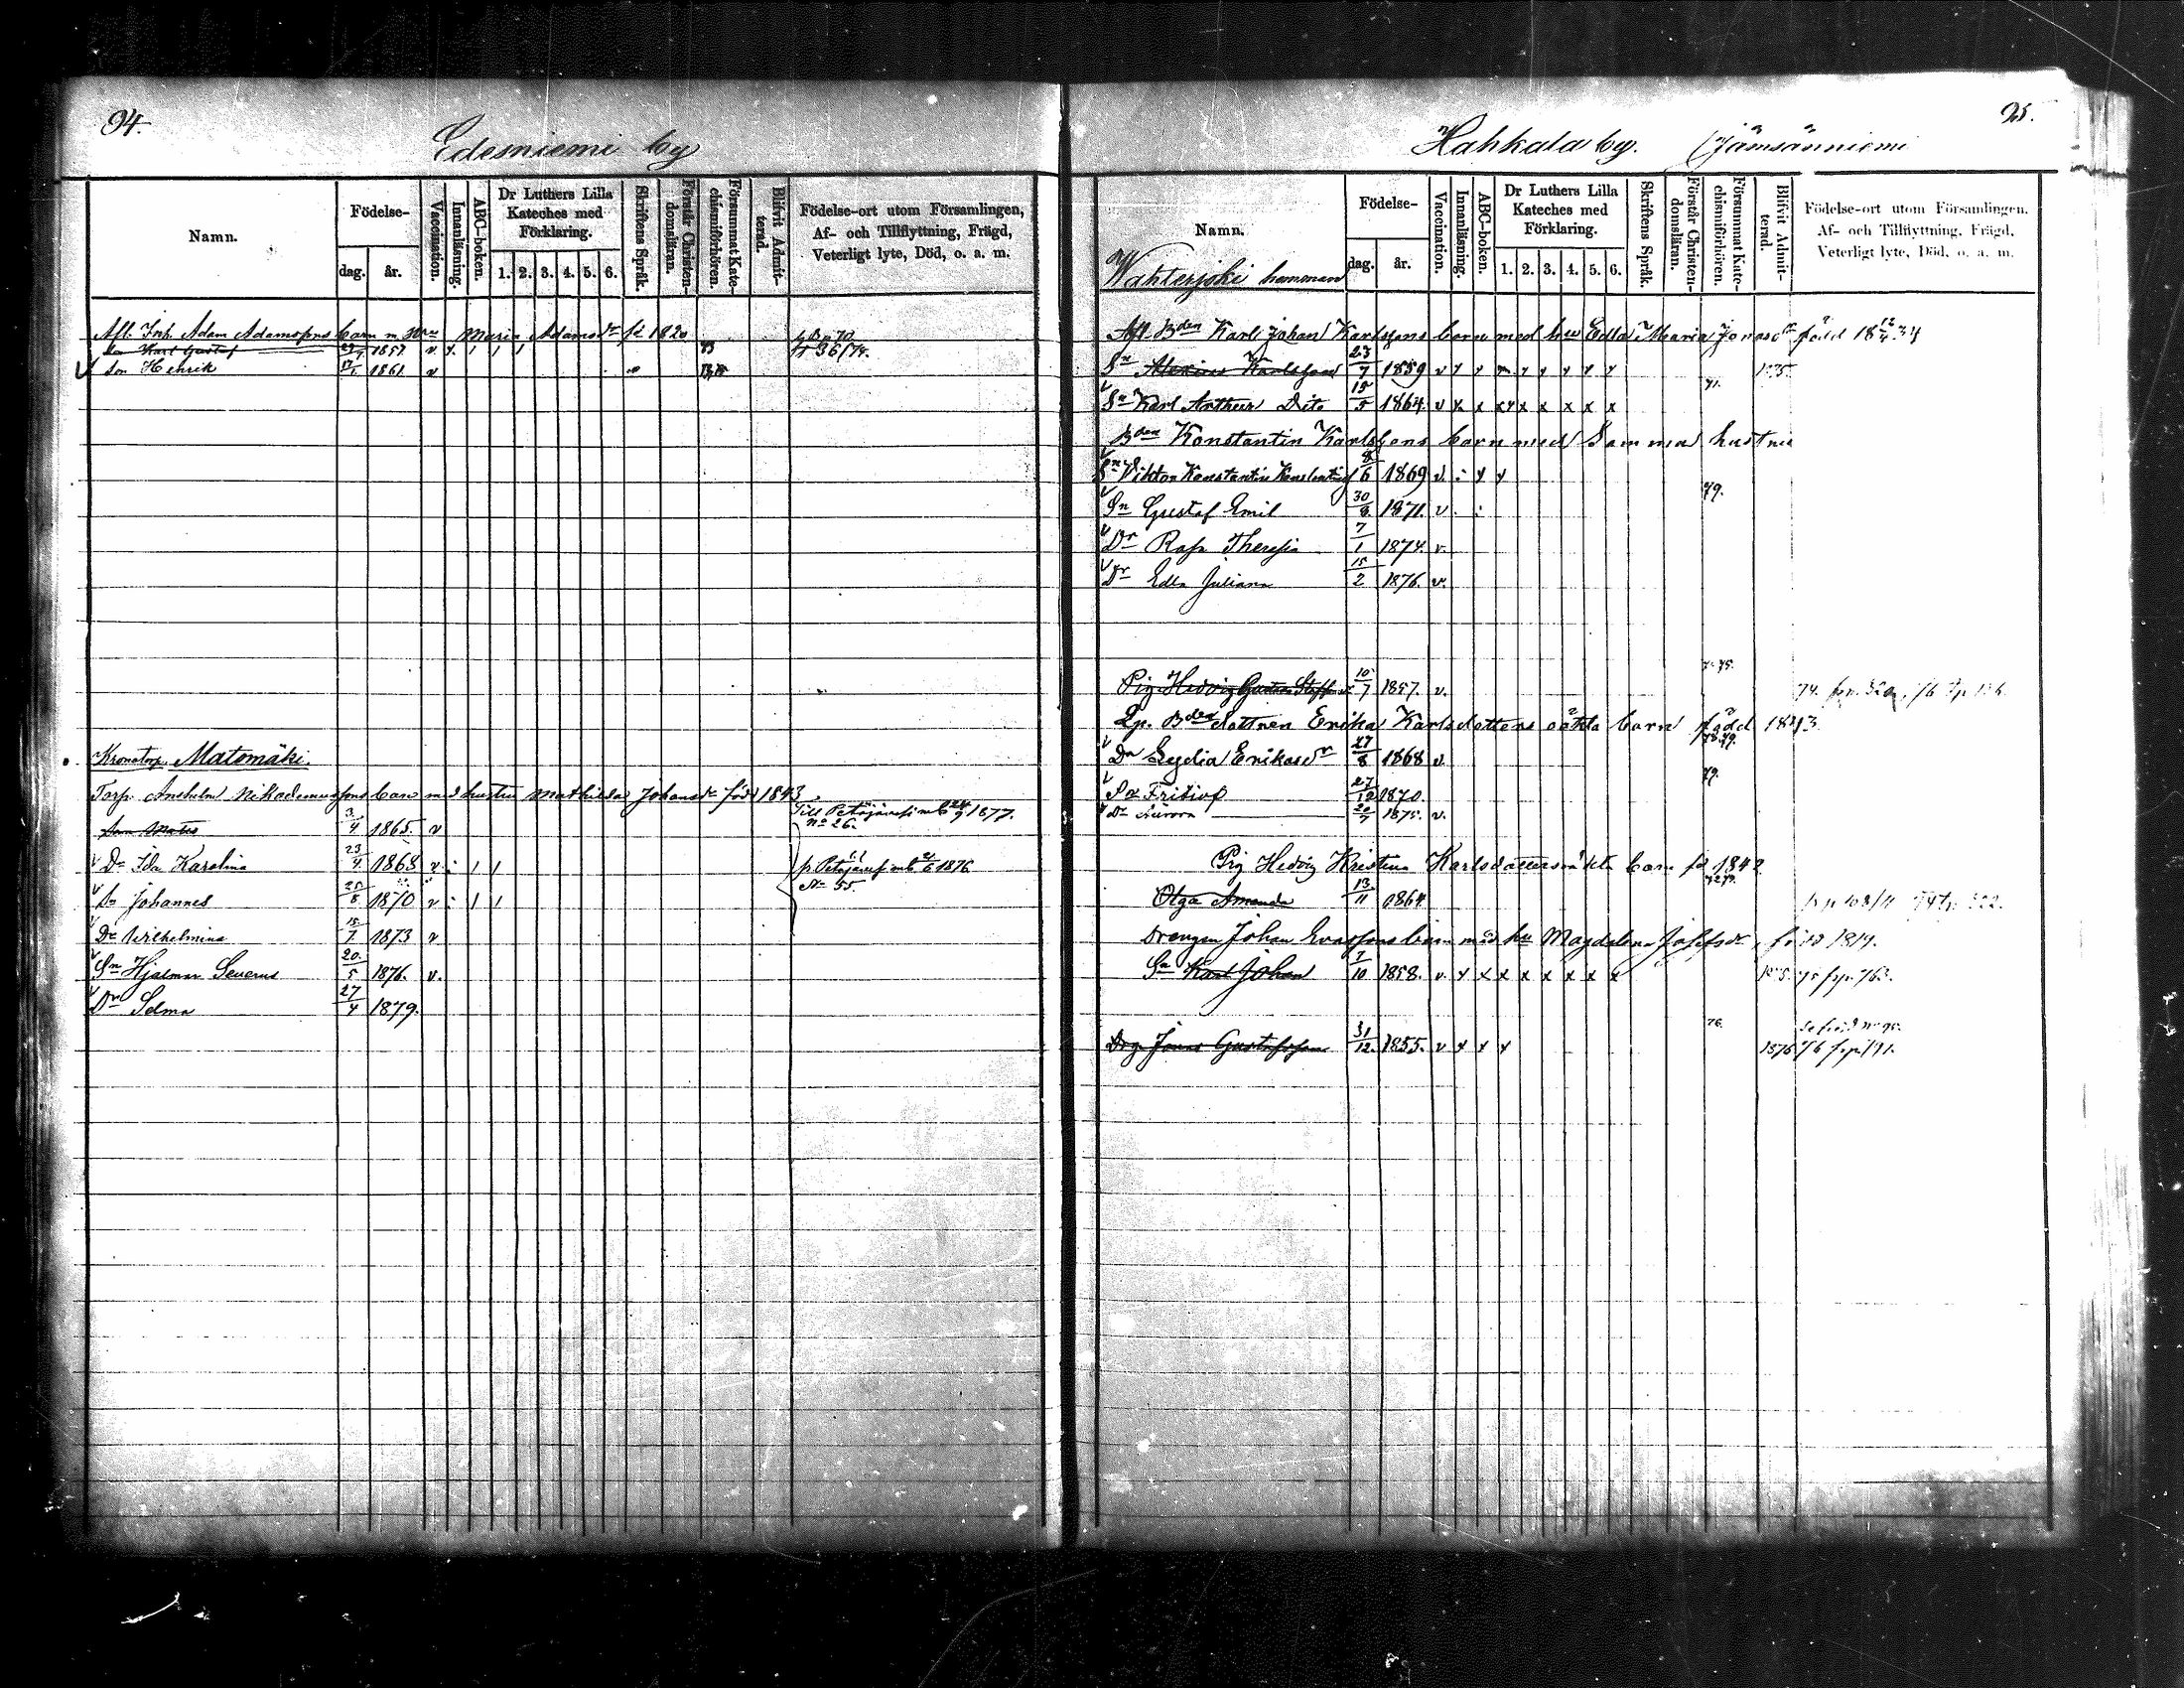 94.
Edesniemi by
Namn.
Födelse-
dag.
år.
Vaccination.
Innanläsning.
ABC-boken.
Dr Luthers Lilla
Kateches med
Förklaring.
1. 2. 3. 4. 5. 6.
Skriftens Språk.
Förstår Christen-
domsläran.
Försummat Kate-
chismiförhören.
Blifvit Admit-
terad.
Födelse-ort utom Församlingen,
Af- och Tillflyttning, Frägd,
Veterligt lyte, Död, o. a. m.
Afl. Inh. Adam Adamssons barn m. Maria Adamsdr fd 1820
Son Karl Gustaf 1857. v 73 36/74.
Son Henrik 1861 v
Kronotorp. Matomäki.
Torp. Anshelm Nikodemussons barn med hustru Mathilda Johansdr född 1843.
Son Mats 3/4 1865. v Till Petäjävesi mb 24/9 1877.
No 26.
Dr Ida Karolina 23/4 1868 v
No 55.
Sn Johannes 25/8 1870 v
Dr Wilhelmina 15/7 1873 v
Sn Hjalmar Severus 20/5 1876. v.
Dr Selma 27/4 1879.
95.
Hahkala by. Jämsänniemi
Namn.
Födelse-
dag.
år.
Vaccination.
Innanläsning.
ABC-boken.
Dr Luthers Lilla
Kateches med
Förklaring.
1. 2. 3. 4. 5. 6.
Skriftens Språk.
Förstår Christen-
domsläran.
Försummat Kate-
chismiförhören.
Blifvit Admit-
terad.
Födelse-ort utom Församlingen.
Af- och Tillflyttning, Frägd,
Veterligt lyte, Död, o. a. m.
Wahterjoki hemman
Afl. Bden Karl Johan Karlssons barn med hu Edla Maria Jonasdr född 18 12/4 34
Sn Karlsson 23/7 1859 v x x x x x x x x
71.
Sn Karl Arthur Dito 15/5 1864. v x x x x x x x x
Bden Konstantin Karlssons barn med Samma hustru
Sn Viktor Konstantin 8/6 1869 v. : x x
79.
Sn Gustaf Emil 30/8 1871. v. :
Dr Rosa Theresia 7/1 1874. v.
Dr Edla Juliana 15/2 1876. v.
75.
Pig. Hedvig 10/7 1857. v.
Lp. Bdedottren Erika Karlsdotters oäkta barn född 1843
78.79.
Dr Lydia Erikasdr 27/8 1868 v.
79.
Sn Fritiof 27/12 1870.
Dr Aurora 20/7 1875. v.
Pig Hedvig Kristina Karlsdotters oäkta barn fd 1842
Olga Amanda 13/11 1864
Drengen Johan Evassons barn med hu Magdalena Josefsdr, född 1819.
Sn Karl Johan 7/10 1858. v. x x x x x x x x
76.
Drg. Jonas Gustafsson 31/12. 1855. v x x x 1876